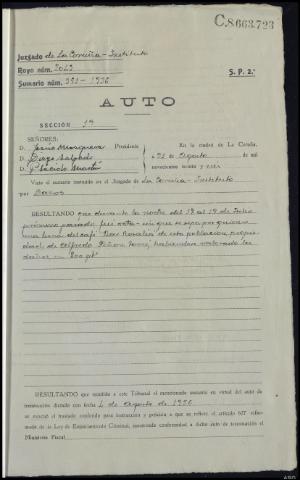 C.8.663.723
Juzgado de La Coruña - Instituto
Rogo núm.
Sumario núm. 1936
S. P. 2.ª
AUTO
SECCIÓN 1ª
SEÑORES:
D. Jesús Presidente
D. Diego Salgado
D.
En la ciudad de La Coruña,
a de Agosto de mil
novecientos treinta y seis
Visto el sumario instruido en el Juzgado de La Coruña - Instituto
por Daños
RESULTANDO que durante la noche del 18 al 19 de Julio
próximo pasado fué rota sin que se sepa por quien
una luna del café de esta población propie
dad de Alfredo habiendose valorado los
daños en
RESULTANDO que remitido a este Tribunal el mencionado sumario en virtud del auto de
terminación dictado con fecha 4 de Agosto de 1936
se evacuó el traslado conferido para instrucción y petición a que se refiere el artículo 627 refor-
mado de la Ley de Enjuiciamiento Criminal, interesando conformidad a dicho auto de terminación el
Ministerio Fiscal